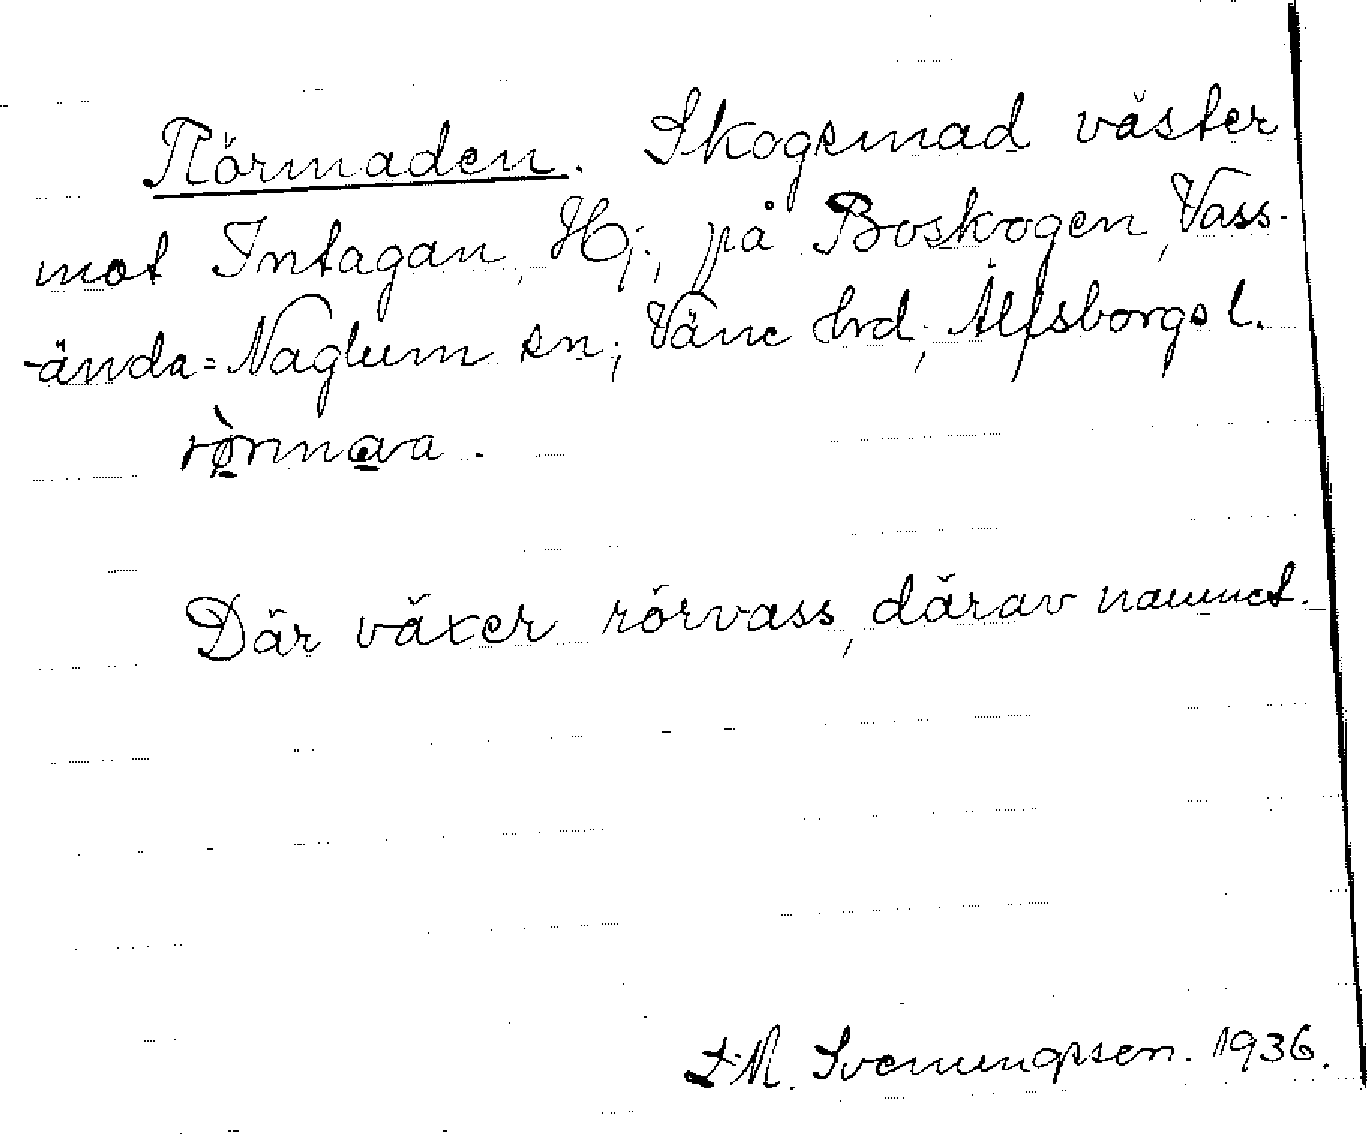 Rörmaden. Skogsmad väster
mot Intagan, Hj., på Boskogen, Vass-
-ända=Naglum sn; Väne hrd; Älfsborgs l.
rò̤rmava.
Där växer rörvass, därav namnet.
L.M. Svenungsson. 1936.